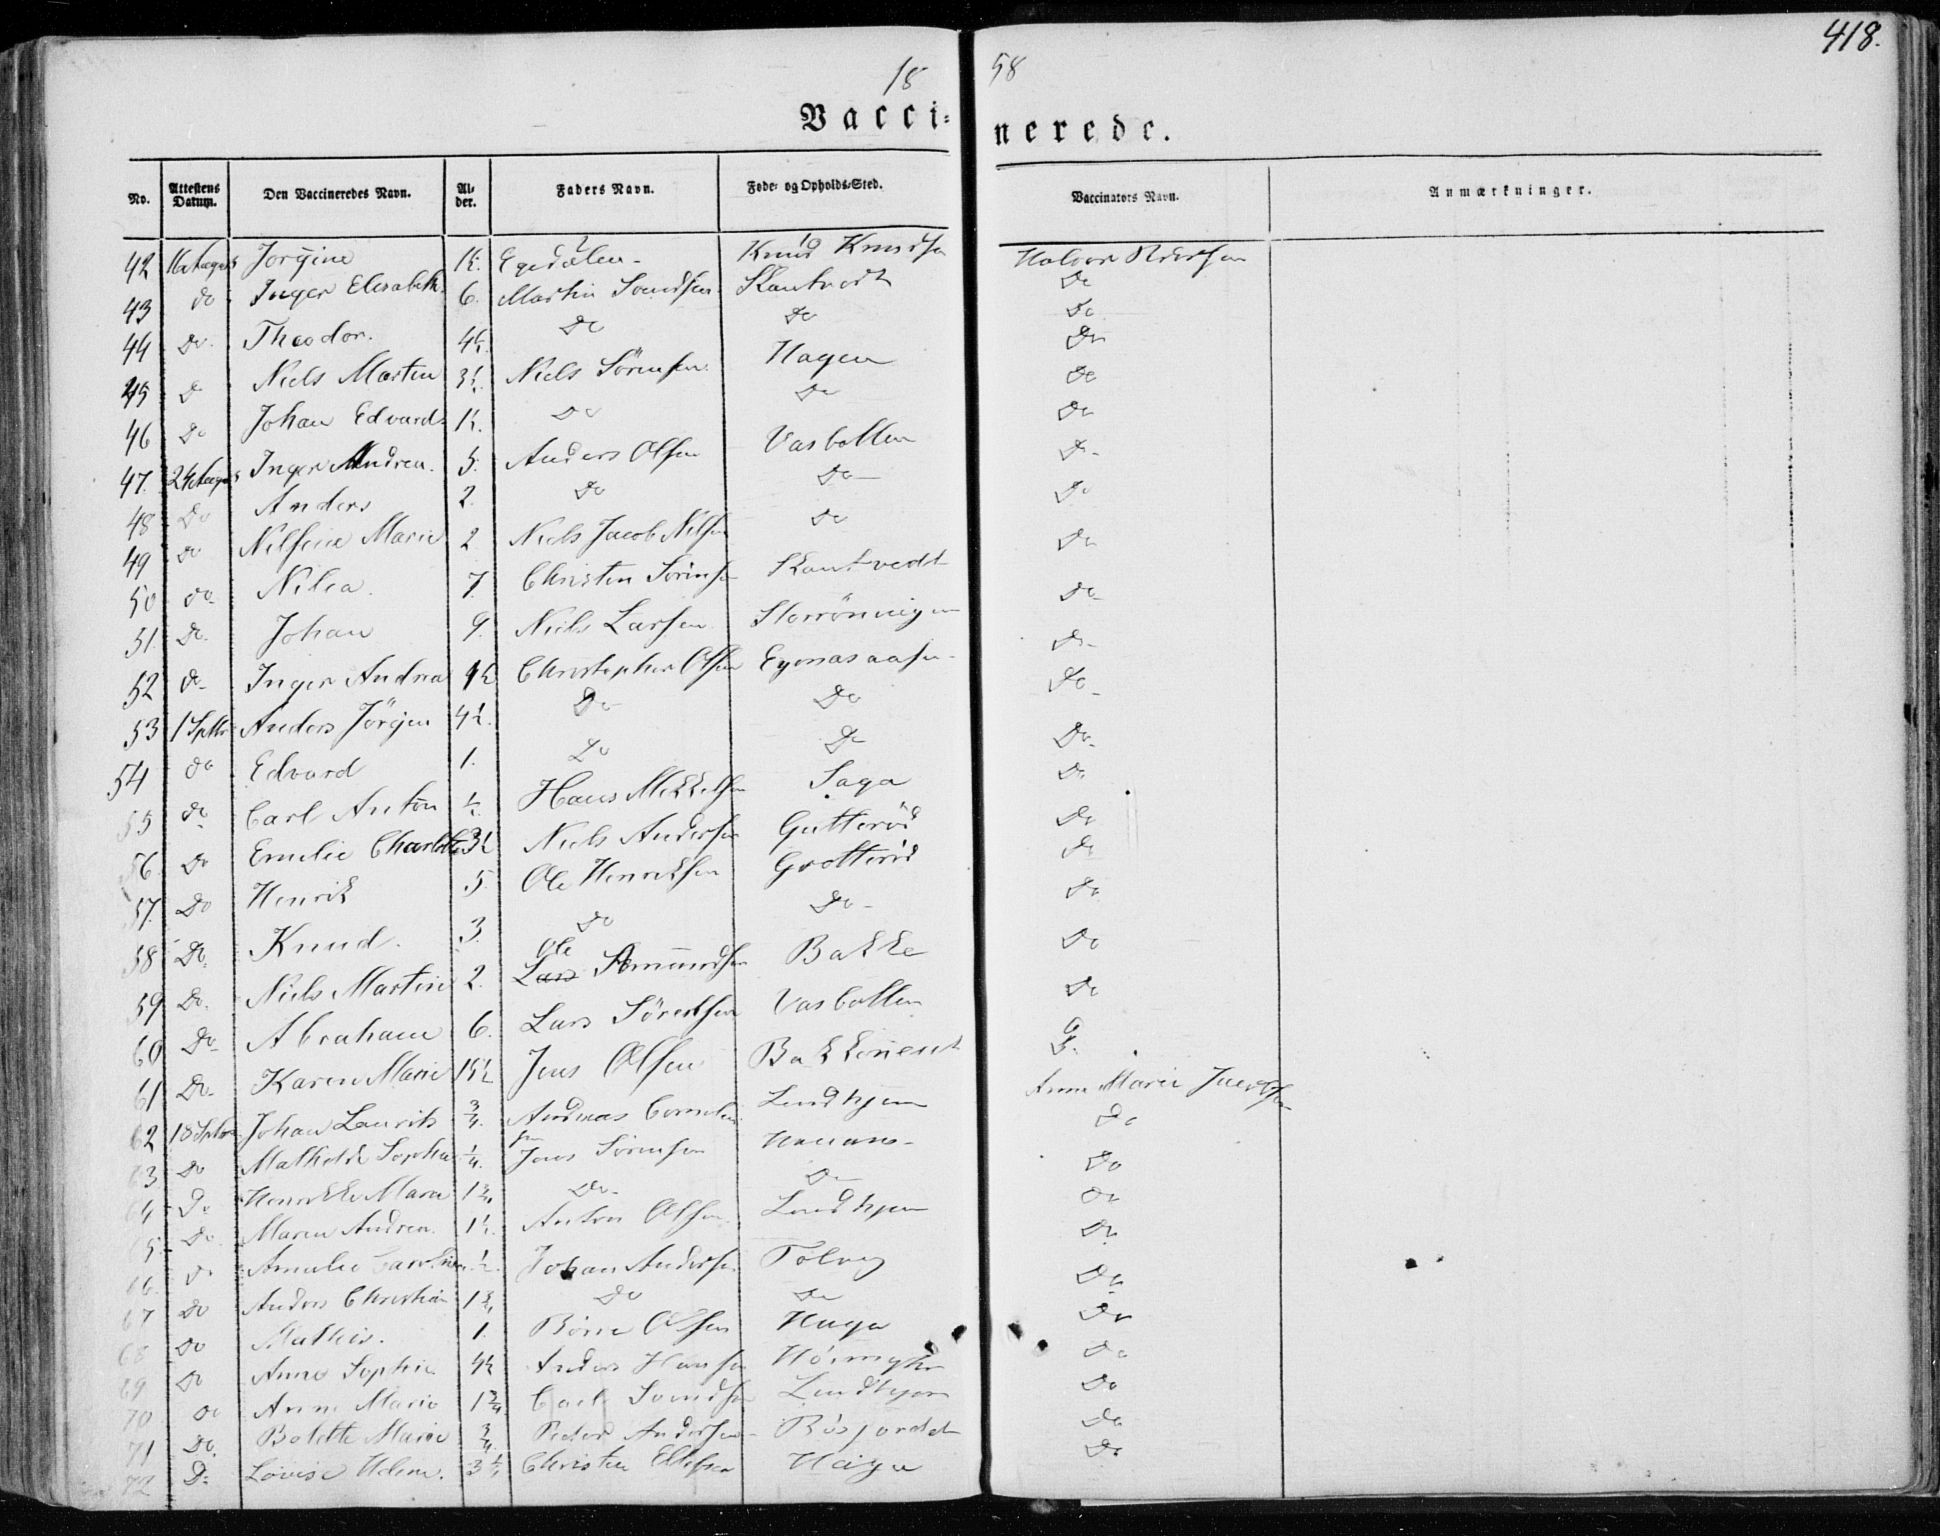 418.
18 58
Vacci= nerede.
No. Attestens Datum. Den Vaccineredes Navn. Al- der. Faders Navn. Føde- og Opholds-Sted. Vaccinators Navn. Anmærkninger.
42 16 August Jorgine 1½. Egedalen - Knud Knudsen Halvor
43 do Inger Elisabeth 6. Martin Svendsen Skantvedt Do
44 Do Theodor. 4½. Do Do Do
45 Do Niels Martin 3½. Niels Sörensen Hagen Do
46 Do Johan Edvard 1½. Do Do Do
47. 24 August Inger Andrea. 5. Anders Olsen Vasbotten Do
48 Do Anders 2. Do Do Do
49 Do Nilsine Marie 2 Niels Jacob Nilsen Do Do
50 Do Nilea. 7. Christen Sörensen Skantvedt Do
51. Do Johan 9. Niels Larsen Storrönningen Do
52 Do Inger Andrea 9½ Christopher Olsen Do
53 1 Septbr Anders Jörgen 4½. Do Do Do
54 do Edvard 1. Do Do Do
55 do Carl Anton ½. Hans Mikkelsen Saga Do
56. Do Emelie Charlotte 3½ Niels Andersen Gutteröd Do
57. Do Henrik 5. Ole Henriksen Grotteröd Do
58 Do Knud. 3. Do Do Do
59 Do Niels Martin 2. Ole Lars Amundsen Bakke Do
60 Do Abraham 6. Lars Sörensen Vasbotten Do
61 Do Karen Marie 15½ Jens Olsen
62 18 Septbr Johan Laurits ¾. Andreas Cornelius sen Lindhjem Anne Marie
63 Do Mathilde Sophie ¼. Jens Sörensen Do
64 Do Henrikke Maria 1¾. Do Do Do
65 Do Maren Andrea. 1½. Anton Olsen Lindhjem Do
66. Do Amalie Caroline ½. Johan Andersen Do
67 Do Anders Christian 1¾ Do Do Do
68 Do Mathis. 1. Börre Olsen Haga Do
69 Do Anne Sophie 4½ Anders Hansen Do
70 Do Anne Marie 1¾ Carl Svendsen Lindhjem Do
71 Do Bolette Marie ¾. Peder Andersen Do
72 Do Lovise Helene. 3½ Christen Ellefsen Haga Do